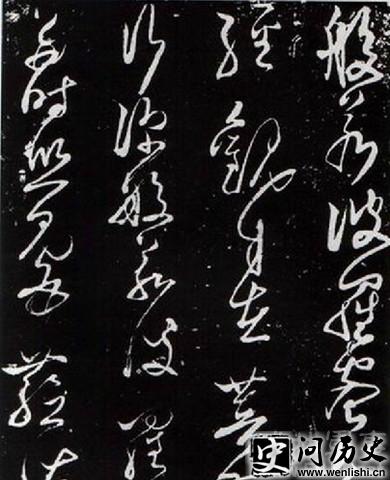 般若波羅蜜
經觀自在菩
行深般若波羅
多時照見五蘊皆
问历史
www.wenlishi.cn